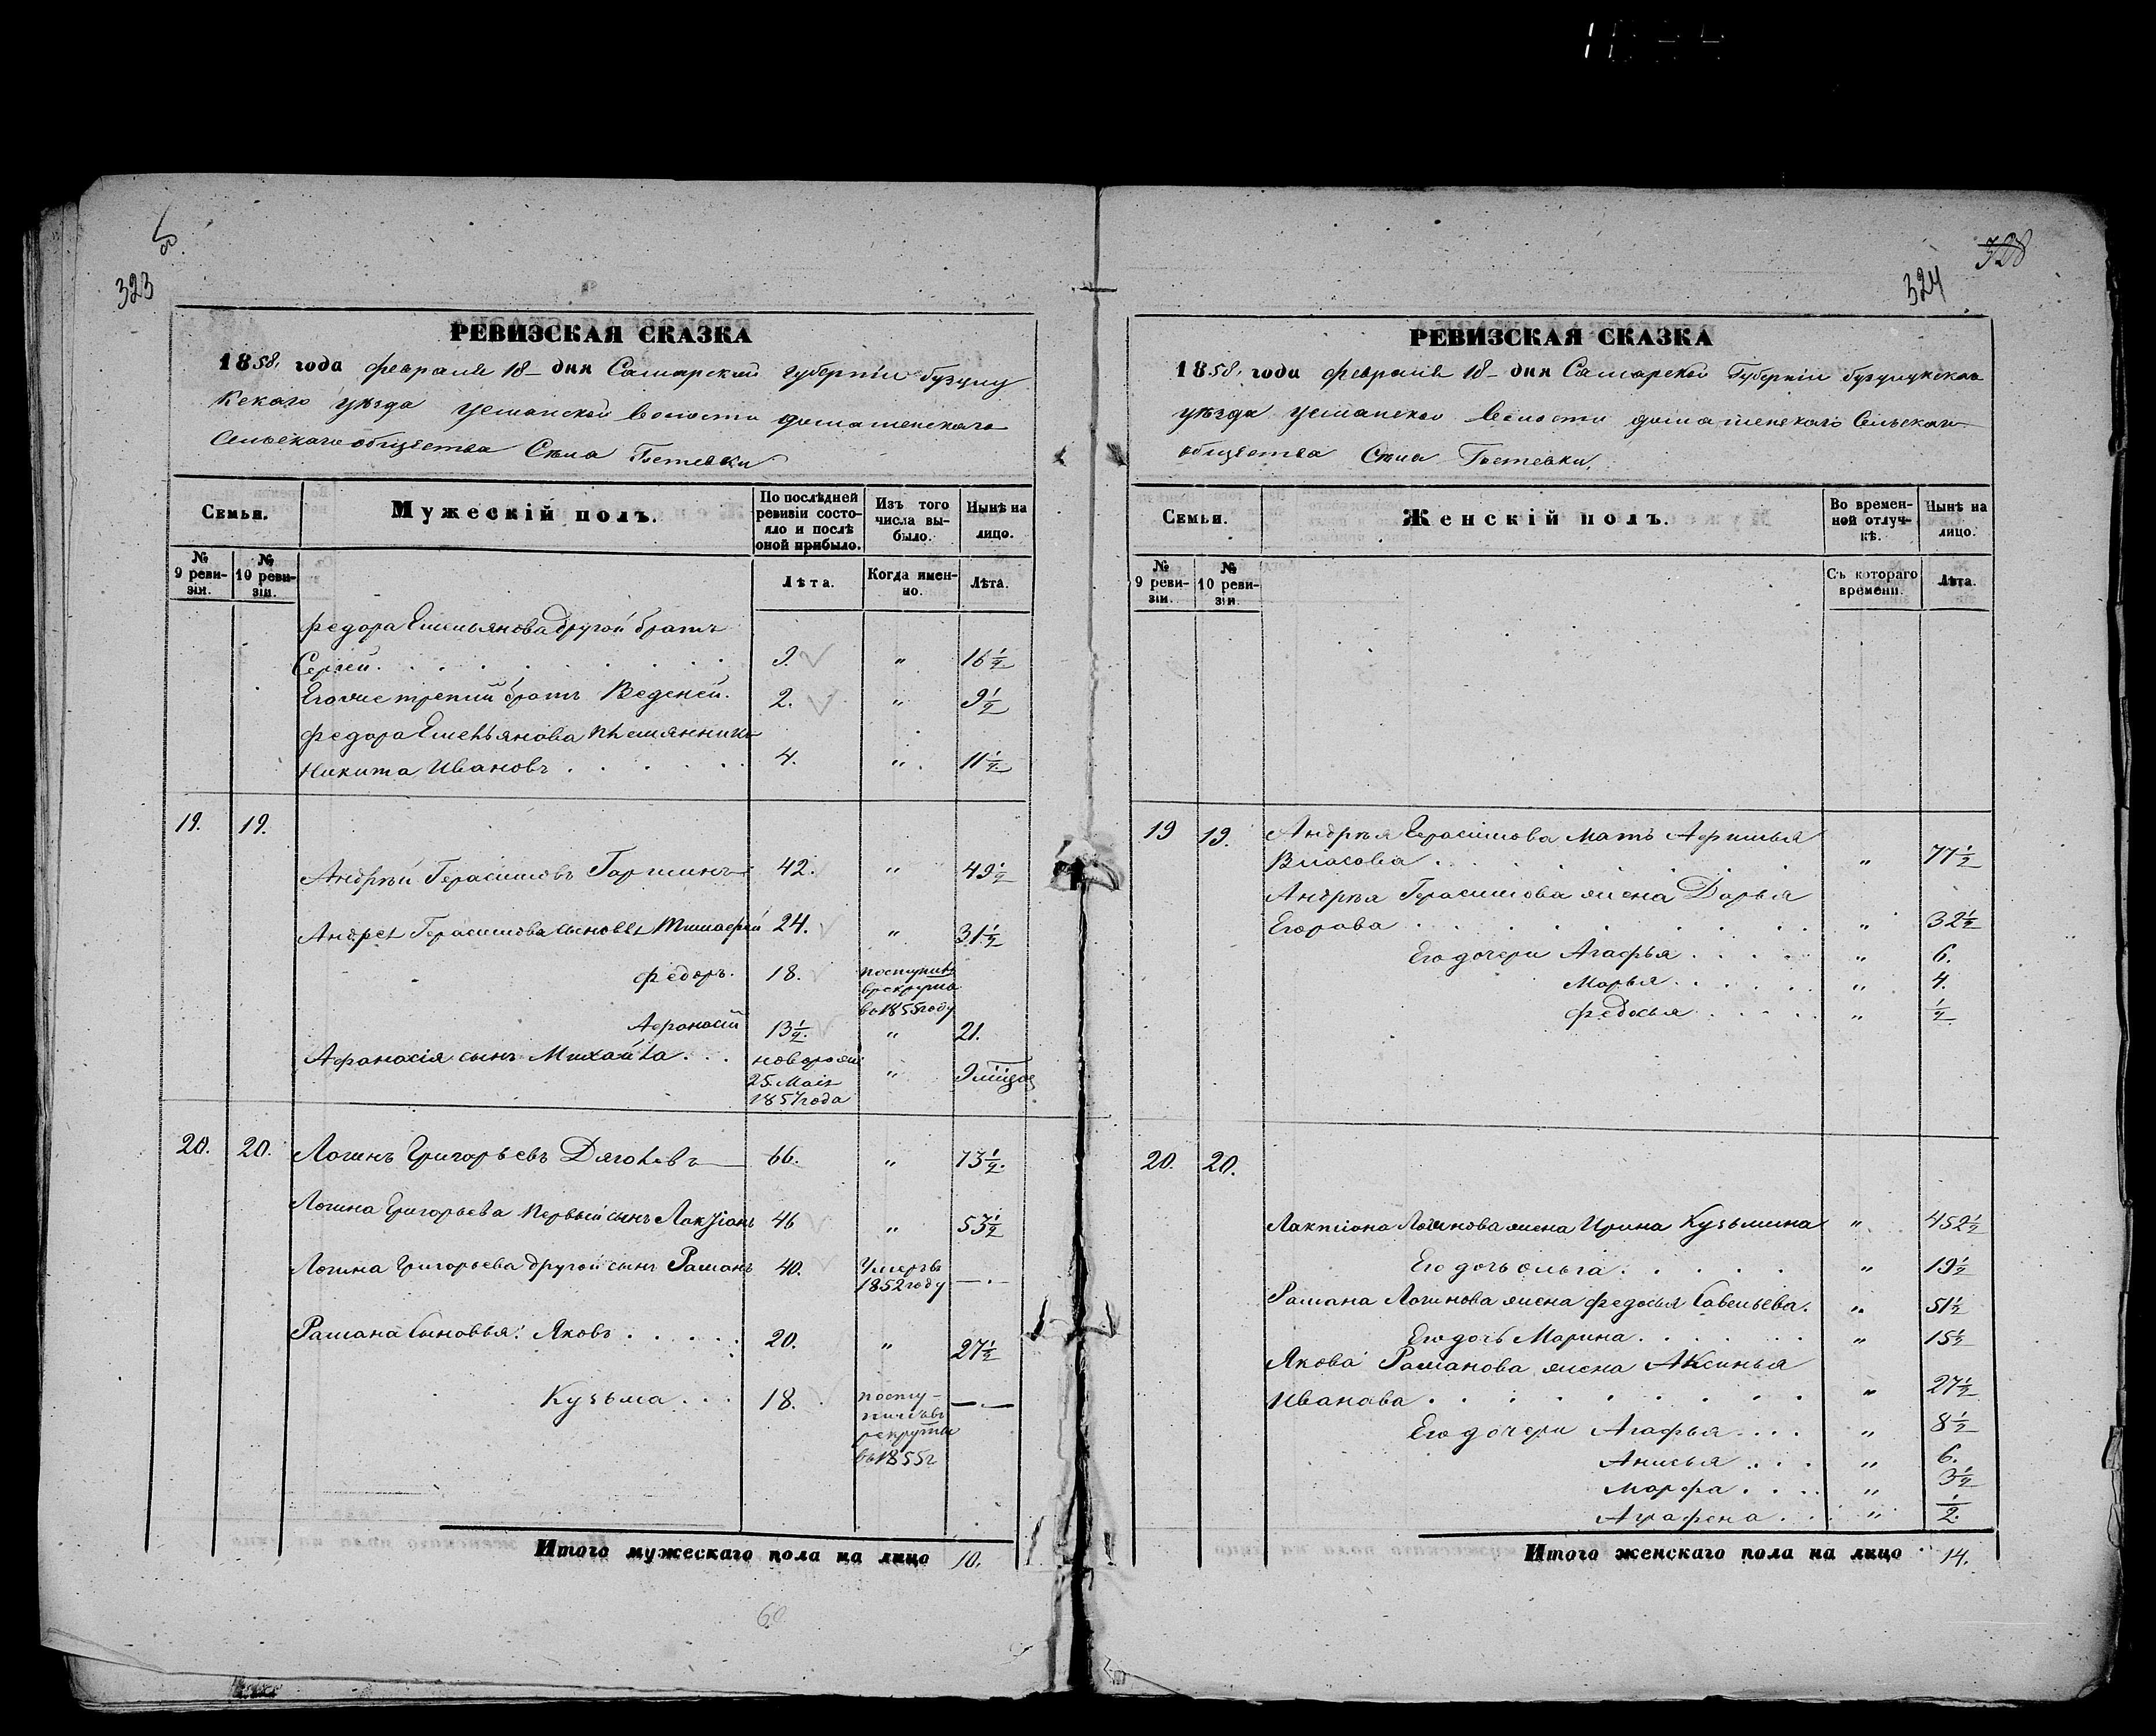 323
324
328
РЕВИЗСКАЯ СКАЗКА
1858. года февраля 18- дня Самарской губернии бузулу
кскаго уѣзда Усманской волости домашенскаго
Сельскаго общества Села Гостевки
Семьи.
Мужескій полъ.
По послѣдней ревизіи состояло и послѣ оной прибыло.
Изъ того числа выбыло.
Нынѣ на лицо.
№ 9 ревизіи.
№ 10 ревизіи.
Лѣта.
Когда именно.
Лѣта.
федора Емельянова другой братъ
Сергей . . . . . . . . 9. " 16 1/2
Его же третий братъ Веденей. 2. " 9 1/2
федора Емельянова племянникъ
Никита Ивановъ . . . . . . 4. " 11 1/2
19. 19.
Андрѣй Герасимовъ Гаршинъ 42. " 49 1/2
Андрея Герасимова сыновья Тимафей 24. " 31 1/2
федоръ. 18. поступилъ
в рекруты
въ 1855 году
Афонасій 13 1/2 " 21.
Афанасія сынъ Михайла . . . новорож " 9 мѣсяц
25. Мая
1857 года
20. 20. Логинъ Григорьевъ Дяговъ 66. " 73 1/2
Логина Григорьева первый сынъ Лактіонъ 46 " 53 1/2
Логина Григорьева другой сынъ Раманъ 40. Умеръ въ
1852 году —.—
Рамана Сыновья: Яковъ . . . . . 20. " 27 1/2
Кузьма . . . 18. посту-
пилъ въ
рекруты
въ 1855 г —.—
Итого мужескаго пола на лицо 10.
60
РЕВИЗСКАЯ СКАЗКА
1858. года февраля 18- дня Самарской Губерніи бузулукскаго
уѣзда Усманской волости домашенскаго Сельскаго
общества Села Гостевки.
Семьи.
Женскій полъ.
Во временной отлучкѣ.
Нынѣ на лицо.
№ 9 ревизіи.
№ 10 ревизіи.
Съ котораго времени.
Лѣта.
19 19. Андрѣя Герасимова мать Афимья
Власова . . . . . . . " 77 1/2
Андрѣя Герасимова жена Дарья
Егорова . . . . . . . . " 32 1/2
Его дочери Агафья . . . . . " 6.
Марья . . . . . . " 4.
федосья . . . . . " 1/2
20. 20.
Лактіона Логинова жена Ирина Кузьмина " 452 1/2
Его дочь ольга . . . . . " 19 1/2
Рамана Логинова жена федосья Савельева. " 51 1/2
Его дочь Марина . . . . . . " 15 1/2
Якова Раманова жена Аксинья
Иванова . . . . . . . . . " 27 1/2
Его дочери Агафья . . . . " 8 1/2
Анисья . . . " 6.
Марфа . . . . " 3 1/2
Аграфена . . . " 1/2.
Итого женскаго пола на лицо 14.